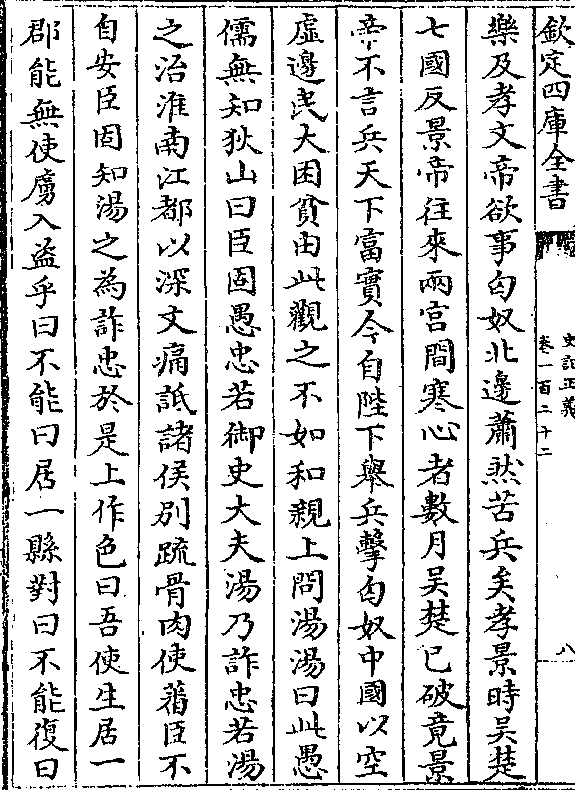 欽定四庫全書
史記正義
卷一百二十二
八
樂及孝文帝欲事匈奴北邊蕭然苦兵矣孝景時吳楚
七國反景帝往來兩宮間寒心者數月吳楚已破竟景
帝不言兵天下富實今自陛下舉兵擊匈奴中國以空
虛邊民大困貧由此觀之不如和親上問湯湯曰此愚
儒無知狄山曰臣固愚忠若御史大夫湯乃詐忠若湯
之治淮南江都以深文痛詆諸侯别疏骨肉使蕃臣不
自安臣固知湯之為詐忠於是上作色曰吾使生居一
郡能無使虜入盗乎曰不能曰居一縣對曰不能復曰